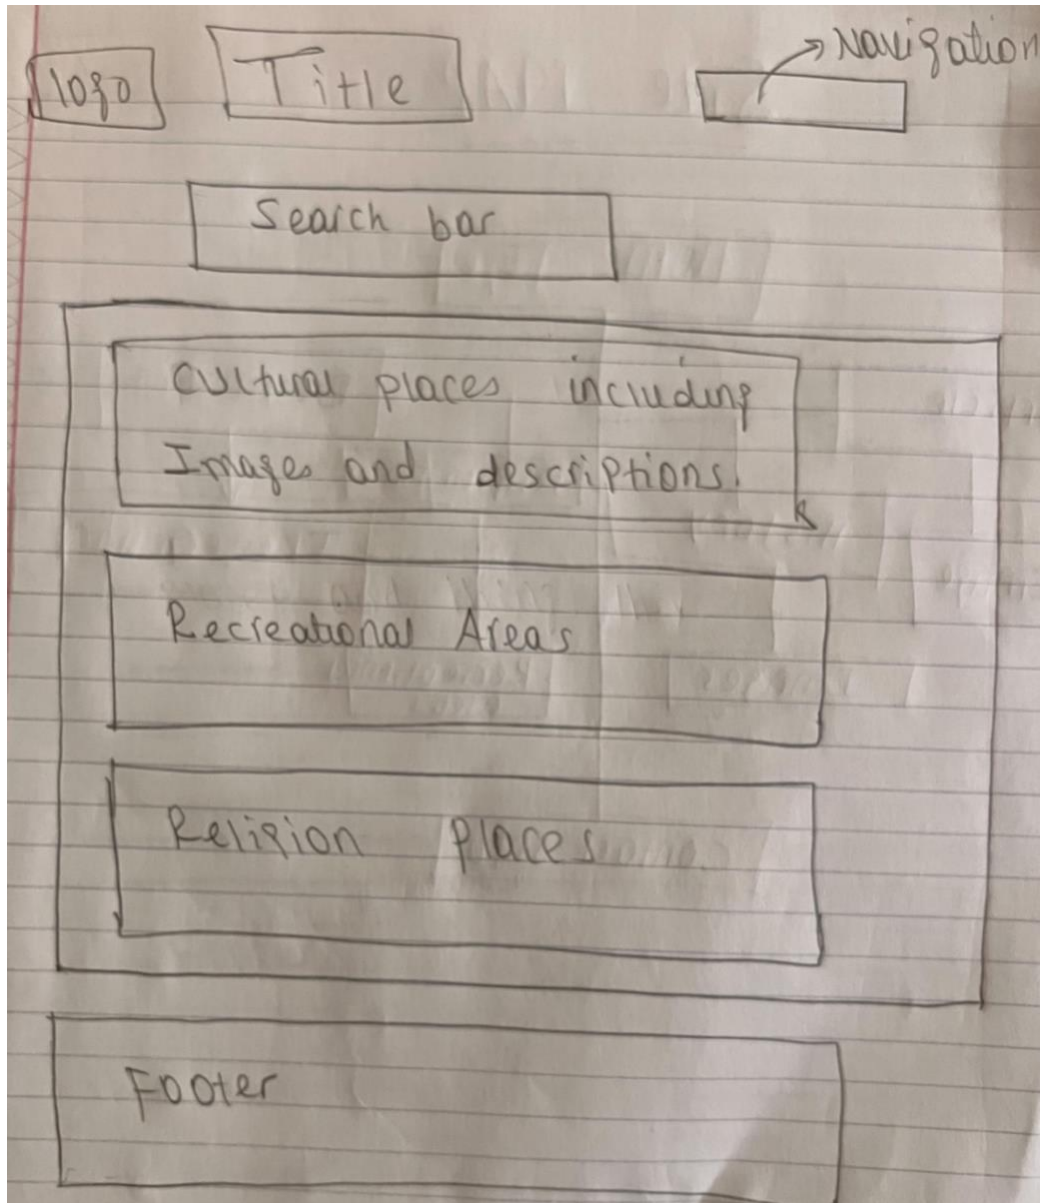 logo
Title
Navigation
Search bar
Cultural places including
Images and descriptions.
Recreational Areas
Religion places
Footer